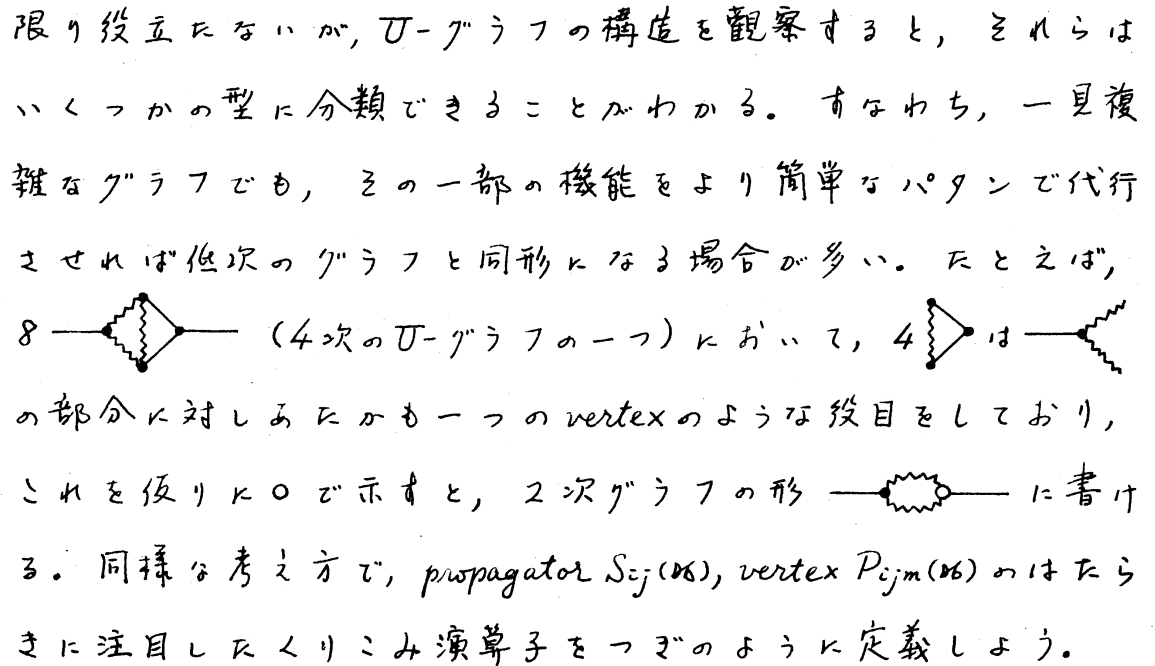 限り役立たないが, U-グラフの構造を観察すると, それらは
いくつかの型に分類できることがわかる。すなわち, 一見複
雑なグラフでも, その一部の機能をより簡単なパタンで代行
させれば低次のグラフと同形になる場合が多い。たとえば,
8 (4次のU-グラフの一つ) において, 4 は
の部分に対しあたかも一つのvertexのような役目をしており,
これを仮りに○で示すと, 2次グラフの形 に書け
る。同様な考え方で, propagator Sij(), vertex Pijm() のはたら
きに注目したくりこみ演算子をつぎのように定義しよう。